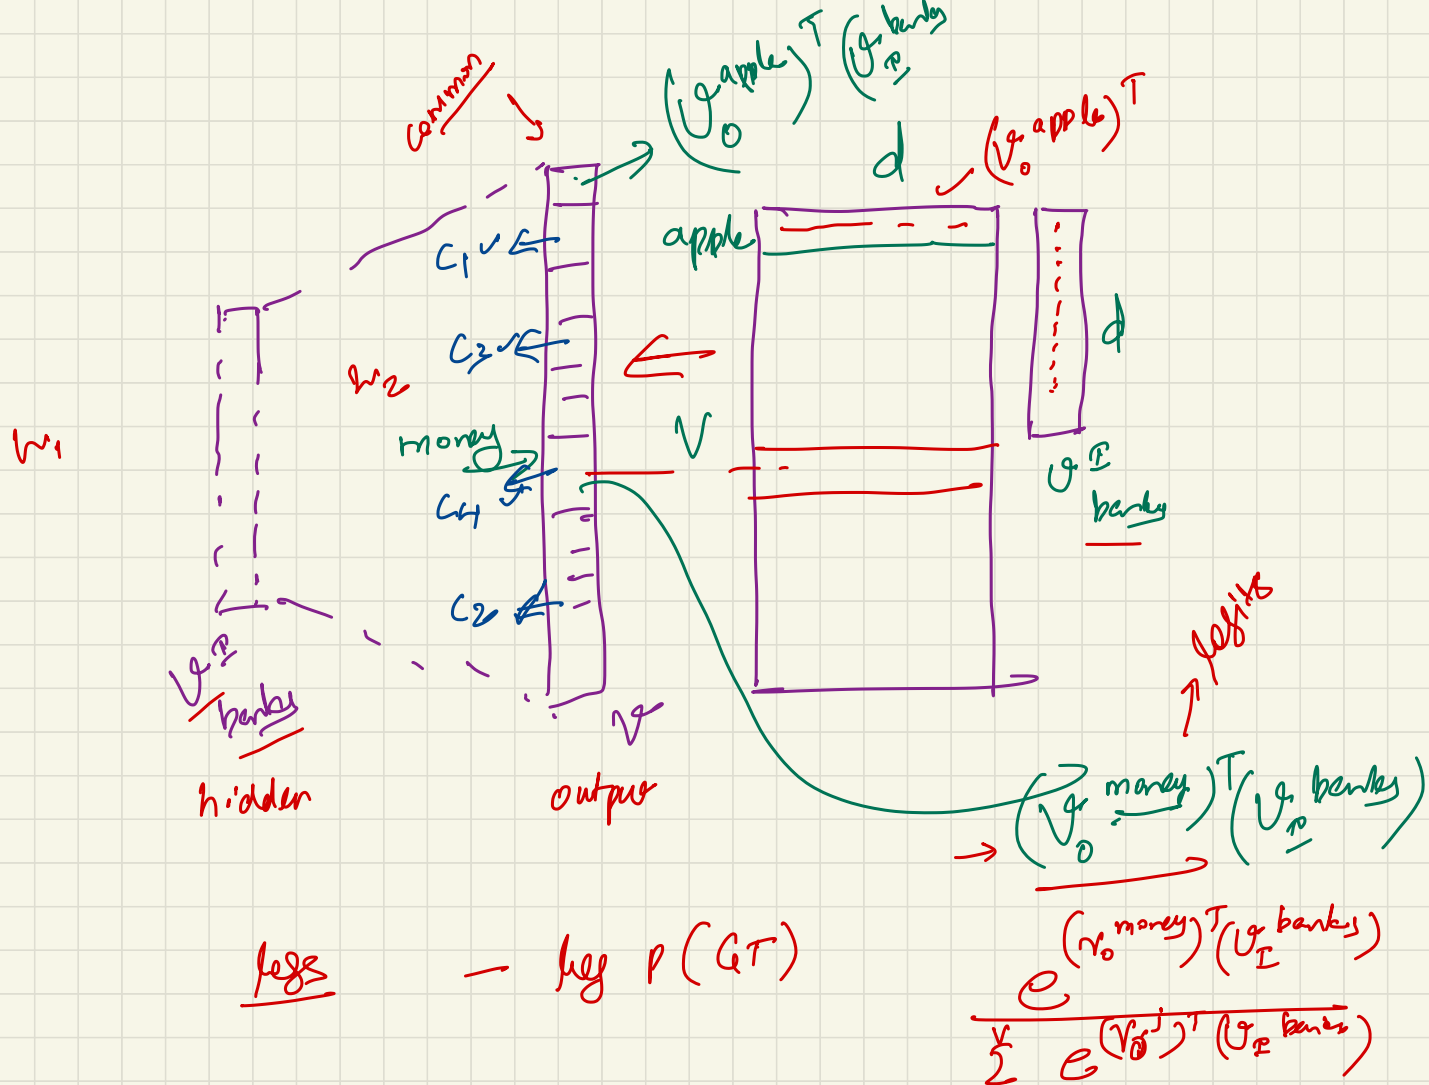 common
(v_O^apple)^T (v_I^banks)
d
(v_O^apple)^T
apple
C1 ✓
C2 ✓
W2
d
V
money
W1
C4
v_I
banks
C3
v_I
banks
V
hidden
output
logits
→ (v_O^money)^T (v_I^banks)
loss — log P(GT)
e^(v_O^money)^T (v_I^banks)
Σ^V e^(v_O^j)^T (v_I^banks)